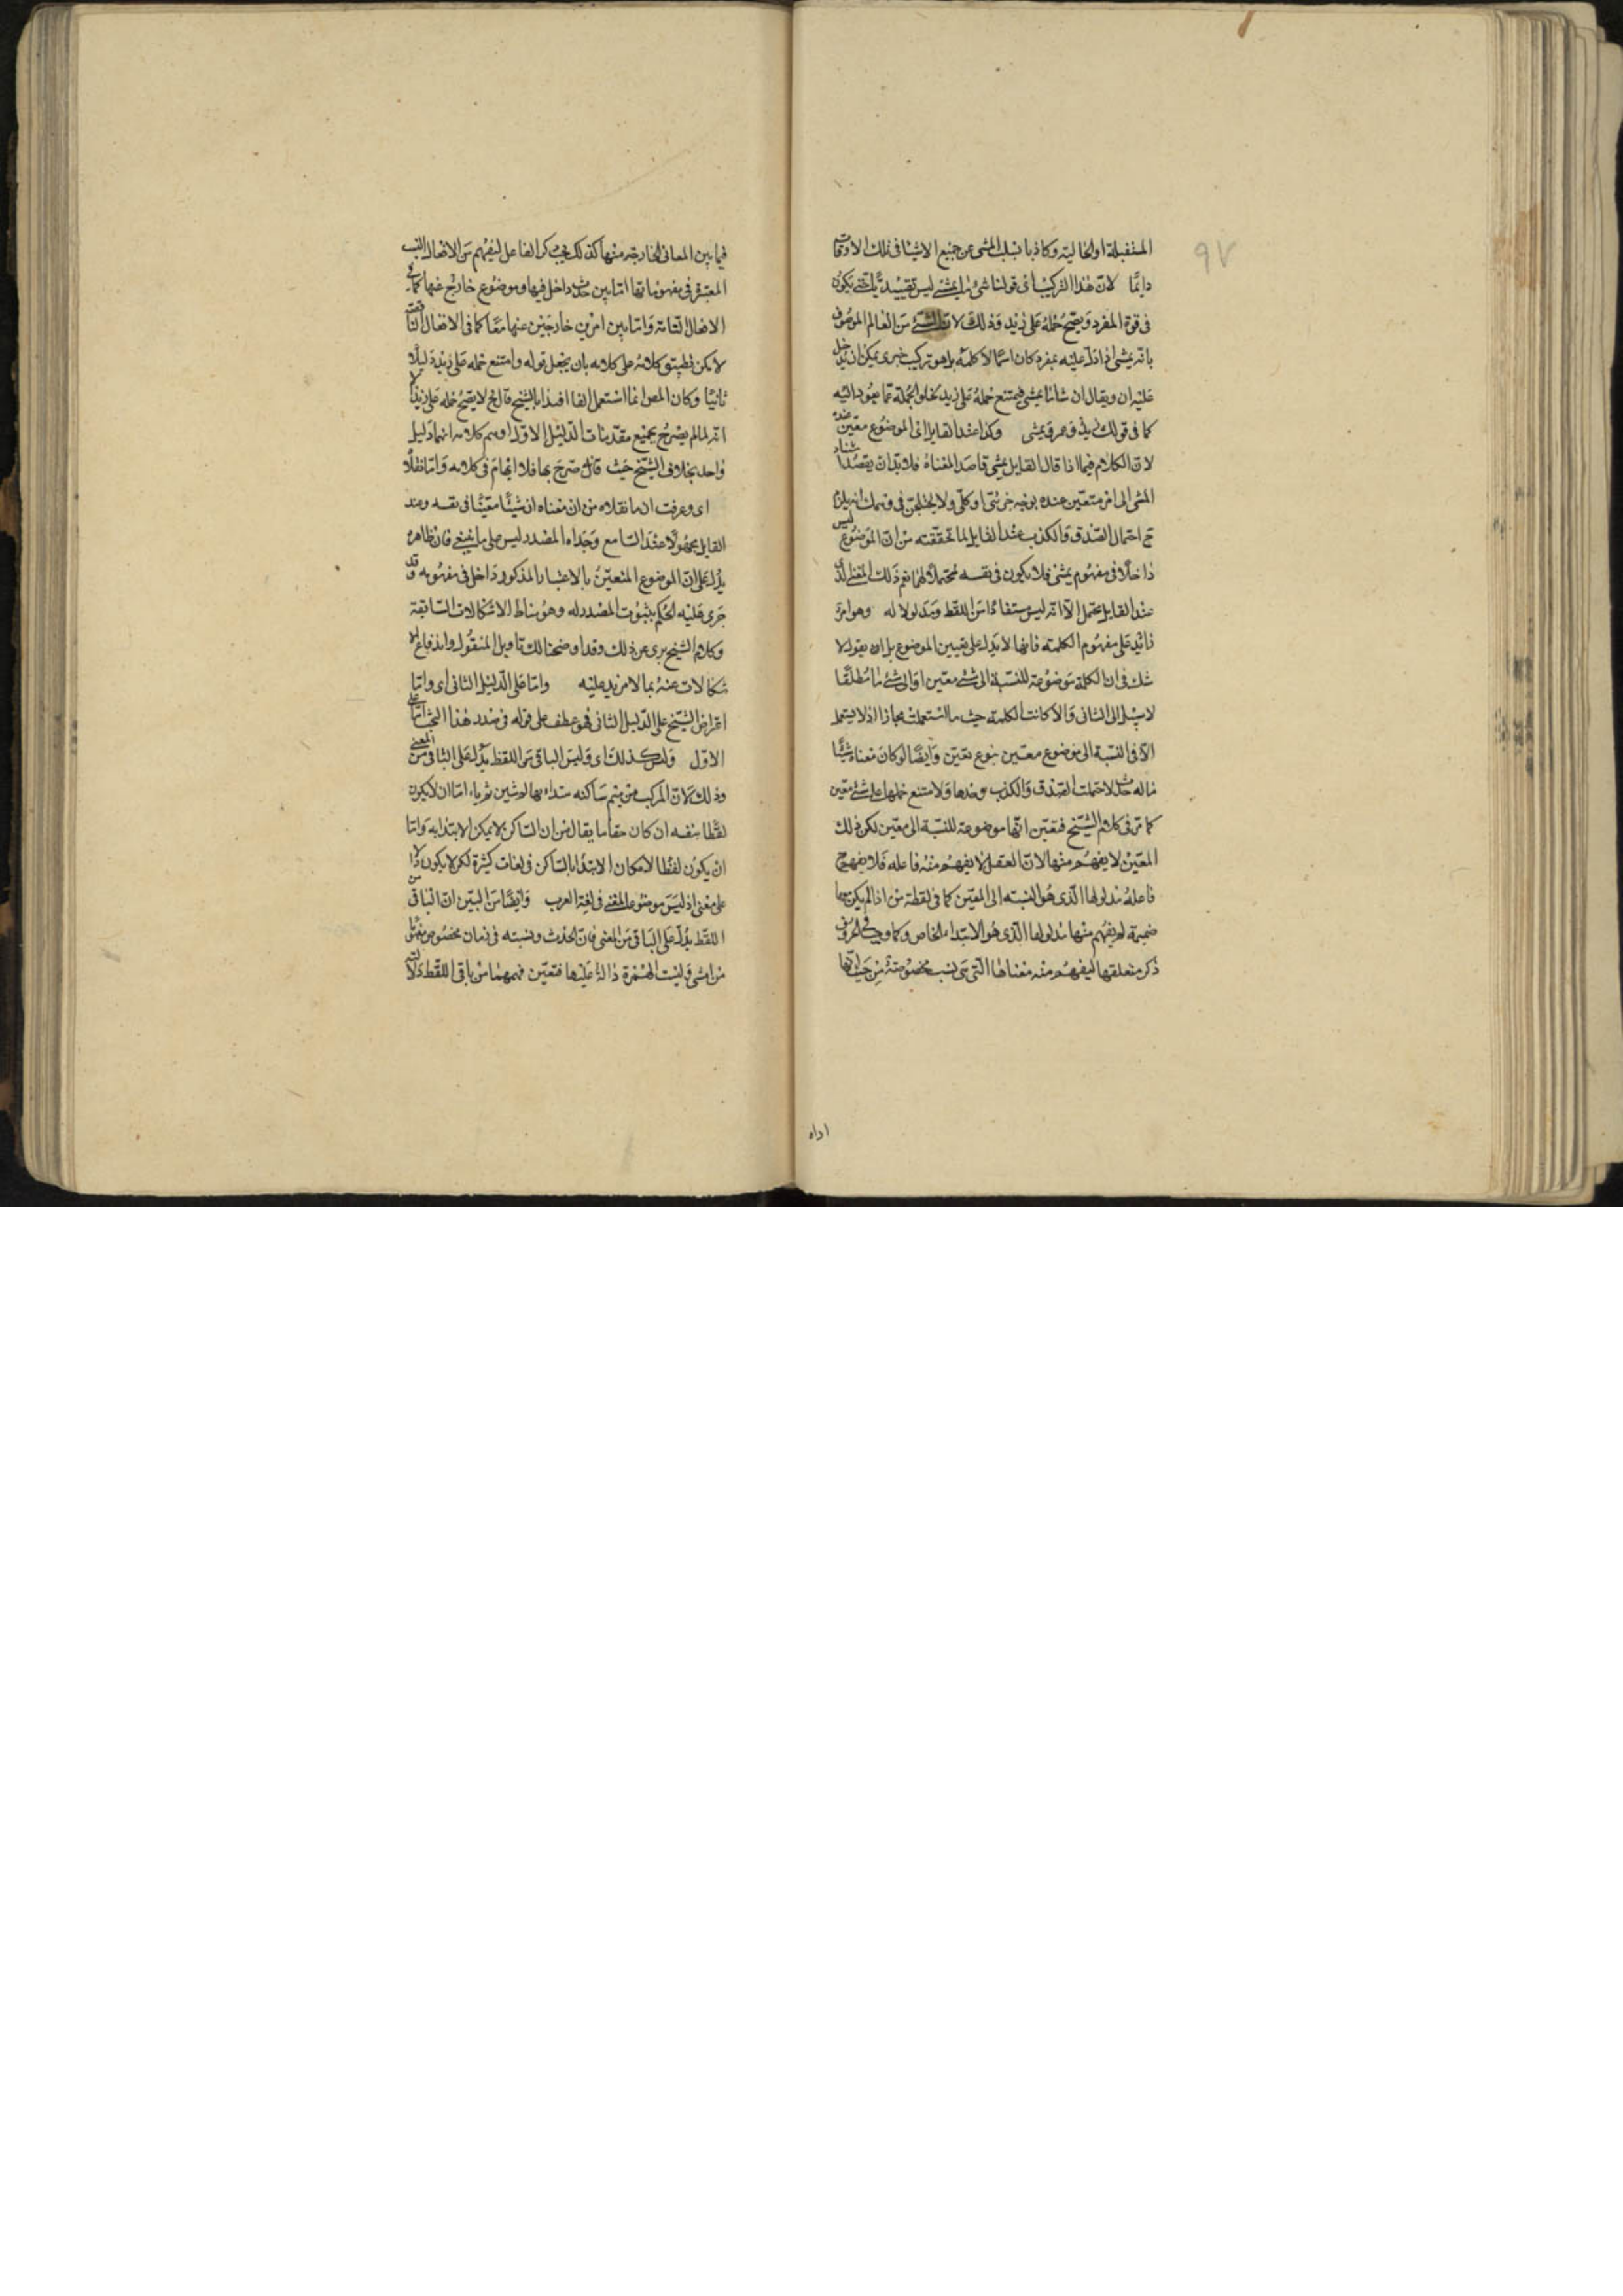 ٩٧
المستقبلة او الحالية وكاذبا بسلب المشى عن جميع الاشيا فى تلك الاوقات
دايما لان هذا التركيب اى قولنا شئ ما يمشى ليس تقييديا حتى يكون
فى قوة المفرد ويصح حمله على زيد وذلك لان الشئ من العالم الموصوف
بانه يمشى اذا دل عليه بمفرد كان اسما لا كلمة بل هو تركيب خبرى يمكن ان يدخل
عليه ان ويقال ان شئا ما يمشى فيمتنع حمله على زيد بخلو الجملة عما يعود اليه
كما فى قولك زيد وعمرو يمشى وكذا عند القايل اى الموضوع معين عنده
لان الكلام فيما اذا قال القايل يمشى قاصدا معناه فلا بد ان يقصد اسناد
المشى الى امر متعين عنده بوجه جزئى او كلى ولا يختلجن فى وهمك انه يلزم
ح احتمال الصدق والكذب عند القايل لما تحققته من ان الموضوع ليس
داخلا فى مفهوم يمشى فلا يكون فى نفسه محتملا لهما نعم ذلك المعنى الذى
عند القايل يحتمل الا انه ليس مستفادا من اللفظ ومدلولا له وهو امر
زائد على مفهوم الكلمة فانها لا تدل على تعيين الموضوع بل ان يقول لا
شك فى ان الكلمة موضوعة للنسبة الى شئ معين او الى شئ ما مطلقا
لا سبيل الى الثانى والا كانت الكلمة حيث ما استعملت مجازا اذ لا يستعمل
الا فى النسبة الى موضوع معين بنوع تعين وايضا لو كان معناه شيئا
ما له حدث لاحتملت الصدق والكذب وحدها ولامتنع حملها على شئ معين
كما مر فى كلام الشيخ فتعين انها موضوعة للنسبة الى معين لكن ذلك
المعين لا يفهم منها لان العقل لا يفهم منه فاعله فلا يفهم ح
فاعله مدلولها الذى هو النسبة الى المعين كما فى لفظة من اذا لم يكن معها
ضميمة لم يفهم منها مدلولها الذى هو الابتداء الخاص وكما وجب فى الحروف
ذكر متعلقها ليفهم منه معناها التى هى نسب مخصوصة من حيث انها
اداه
فيما بين المعانى الخارجة منها كذلك يجب ذكر الفاعل ليفهم من الافعال النسب
المعتبرة فى مفهوماتها اما بين حدث داخل فيها وموضوع خارج عنها كما فى
الافعال التامة واما بين امرين خارجين عنها معا كما فى الافعال الناقصة
لا يمكن تطبيق كلامه على كلامه بان يجعل قوله وامتنع حمله على زيد دليلا
ثانيا وكان المص انما استعمل الفا اقتداء بالشيخ قال فلا يصح حمله على زيد الا
انه لما لم يصرح بجميع مقدمات الدليل الاول اوهم كلامه انهما دليل
واحد بخلاف الشيخ حيث صرح بها فلا ايهام فى كلامه واما نقلا
اى وعرفت ان ما نقلاه من ان معناه ان شيئا معينا فى نفسه وعند
القايل مجهولا عند السامع وجد له المصدر ليس على ما ينبغى فان ظاهره
يدل على ان الموضوع المتعين بالاعتبار المذكور داخل فى مفهومه وقد
جرى عليه الحكم بثبوت المصدر له وهو مناط الاشكالات السابقة
وكلام الشيخ برى عن ذلك وقد اوضحنا لك تاويل المنقول واندفاع الا
شكالات عنه بما لا مزيد عليه واما على الدليل الثانى اى واما
اعتراض الشيخ على الدليل الثانى فهو عطف على قوله فى صدر هذا البحث اما على
الاول وليس كذلك اى وليس الباقى من اللفظ يدل على الباقى من المعنى
وذلك لان المركب من ميم ساكنه مبتداء بها ثم شين ثم ياء اما ان لا يكون
لفظا بنفسه ان كان حقا ما يقال من ان الساكن لا يمكن الابتدا به واما
ان يكون لفظا لامكان الابتدا بالساكن فى لغات كثيرة لكن لا يكون دالا
على معنى اذ ليس موضوعا لمعنى فى لغة العرب وايضا من البين ان الباقى من
اللفظ يدل على الباقى من المعنى فان الحدث ونسبته فى زمان مخصوص مفهومان
من امشى وليست الهمزة دالة عليها فتعين فهمهما من باقى اللفظ دلالة